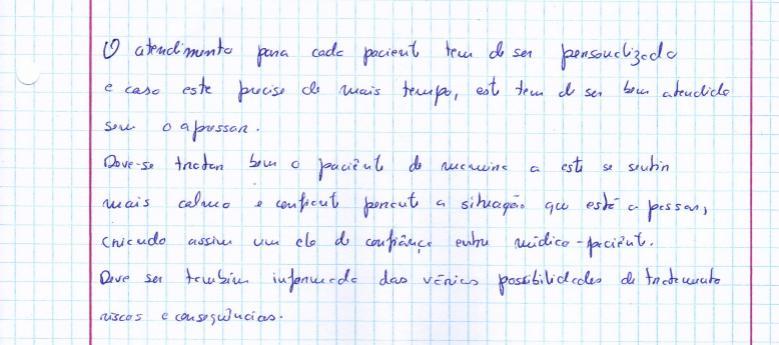 O atendimento para cada pacient tem de ser personalizado
e caso este precise de mais tempo, est tem d ser bem atendido
sem o apressar.
Deve-se tratar bem o paciênt de maneira a est se sentir
mais calmo e confient perant a situação que está a passar,
criando assim um elo de confiança entre médico-paciênt.
Deve ser também informado das vários possibilidades de tratamento
riscos e consequências.